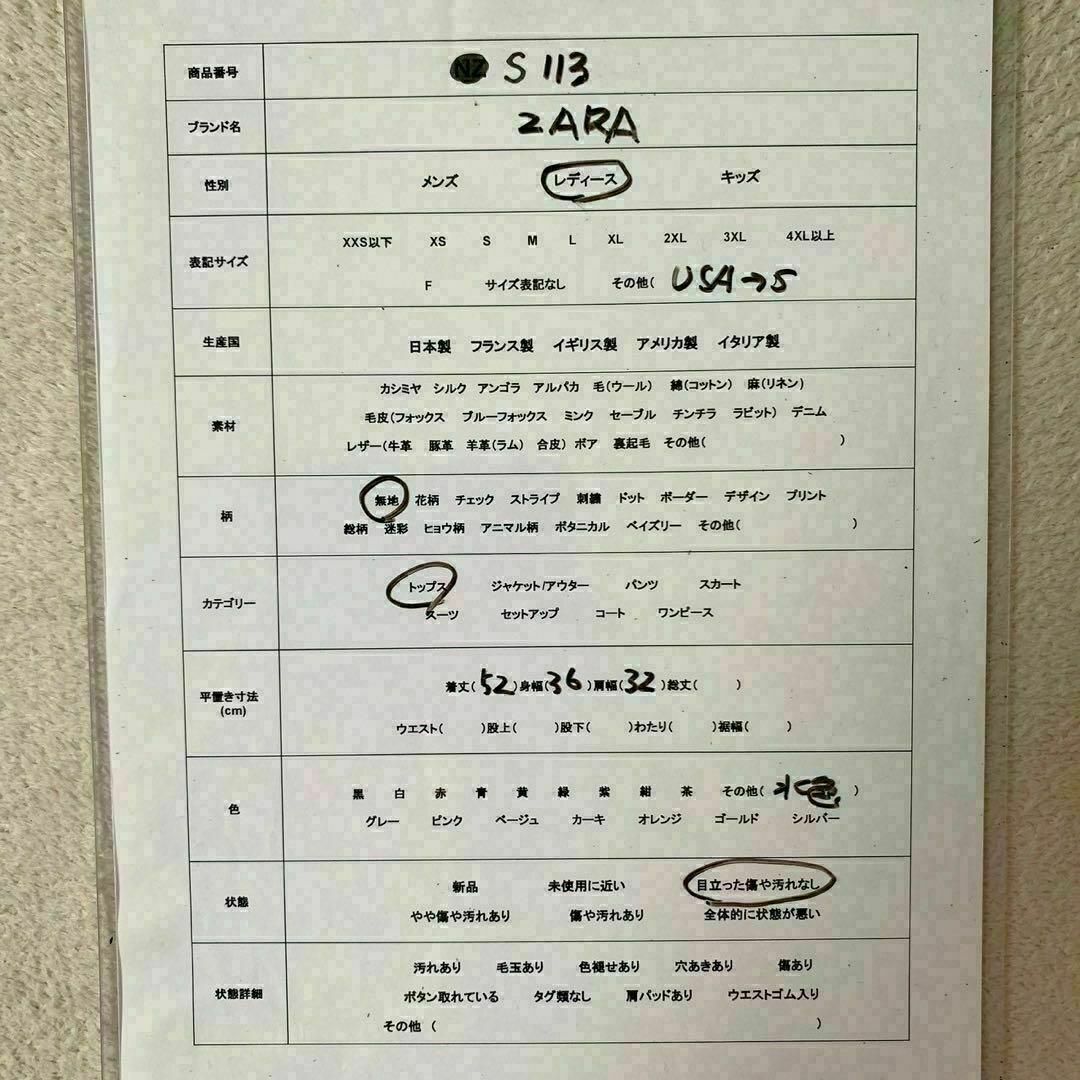 商品番号 NZ S 113
ブランド名 ZARA
性別 メンズ レディース キッズ
表記サイズ
XXS以下 XS S M L XL 2XL 3XL 4XL以上
F サイズ表記なし その他( USA→S
生産国 日本製 フランス製 イギリス製 アメリカ製 イタリア製
素材
カシミヤ シルク アンゴラ アルパカ 毛(ウール) 綿(コットン) 麻(リネン)
毛皮(フォックス ブルーフォックス ミンク セーブル チンチラ ラビット) デニム
レザー(牛革 豚革 羊革(ラム) 合皮) ボア 裏起毛 その他( )
柄
無地 花柄 チェック ストライプ 刺繍 ドット ボーダー デザイン プリント
総柄 迷彩 ヒョウ柄 アニマル柄 ボタニカル ペイズリー その他( )
カテゴリー
トップス ジャケット/アウター パンツ スカート
スーツ セットアップ コート ワンピース
平置き寸法
(cm)
着丈(52)身幅(36)肩幅(32)総丈( )
ウエスト( )股上( )股下( )わたり( )裾幅( )
色
黒 白 赤 青 黄 緑 紫 紺 茶 その他( 水色 )
グレー ピンク ベージュ カーキ オレンジ ゴールド シルバー
状態
新品 未使用に近い 目立った傷や汚れなし
やや傷や汚れあり 傷や汚れあり 全体的に状態が悪い
状態詳細
汚れあり 毛玉あり 色褪せあり 穴あきあり 傷あり
ボタン取れている タグ類なし 肩パッドあり ウエストゴム入り
その他 ( )